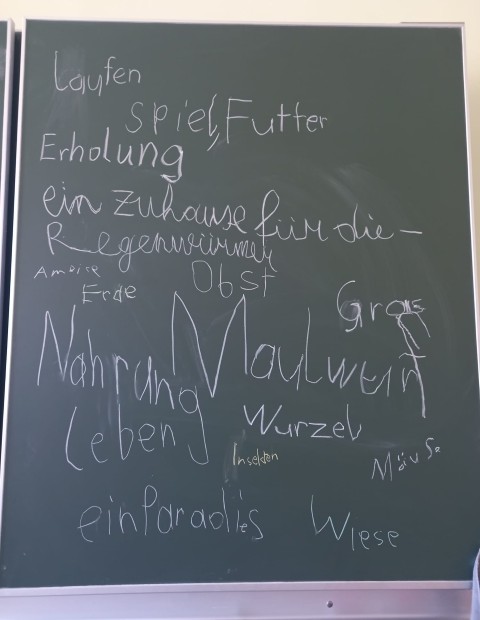 Laufen
spiel, Futter
Erholung
ein zuhause für die -
Regenwürmer
Ameise Obst
Erde
Gras
Nahrung Maulwurf
Leben Wurzel
Insekten Mäuse
ein Paradies Wiese